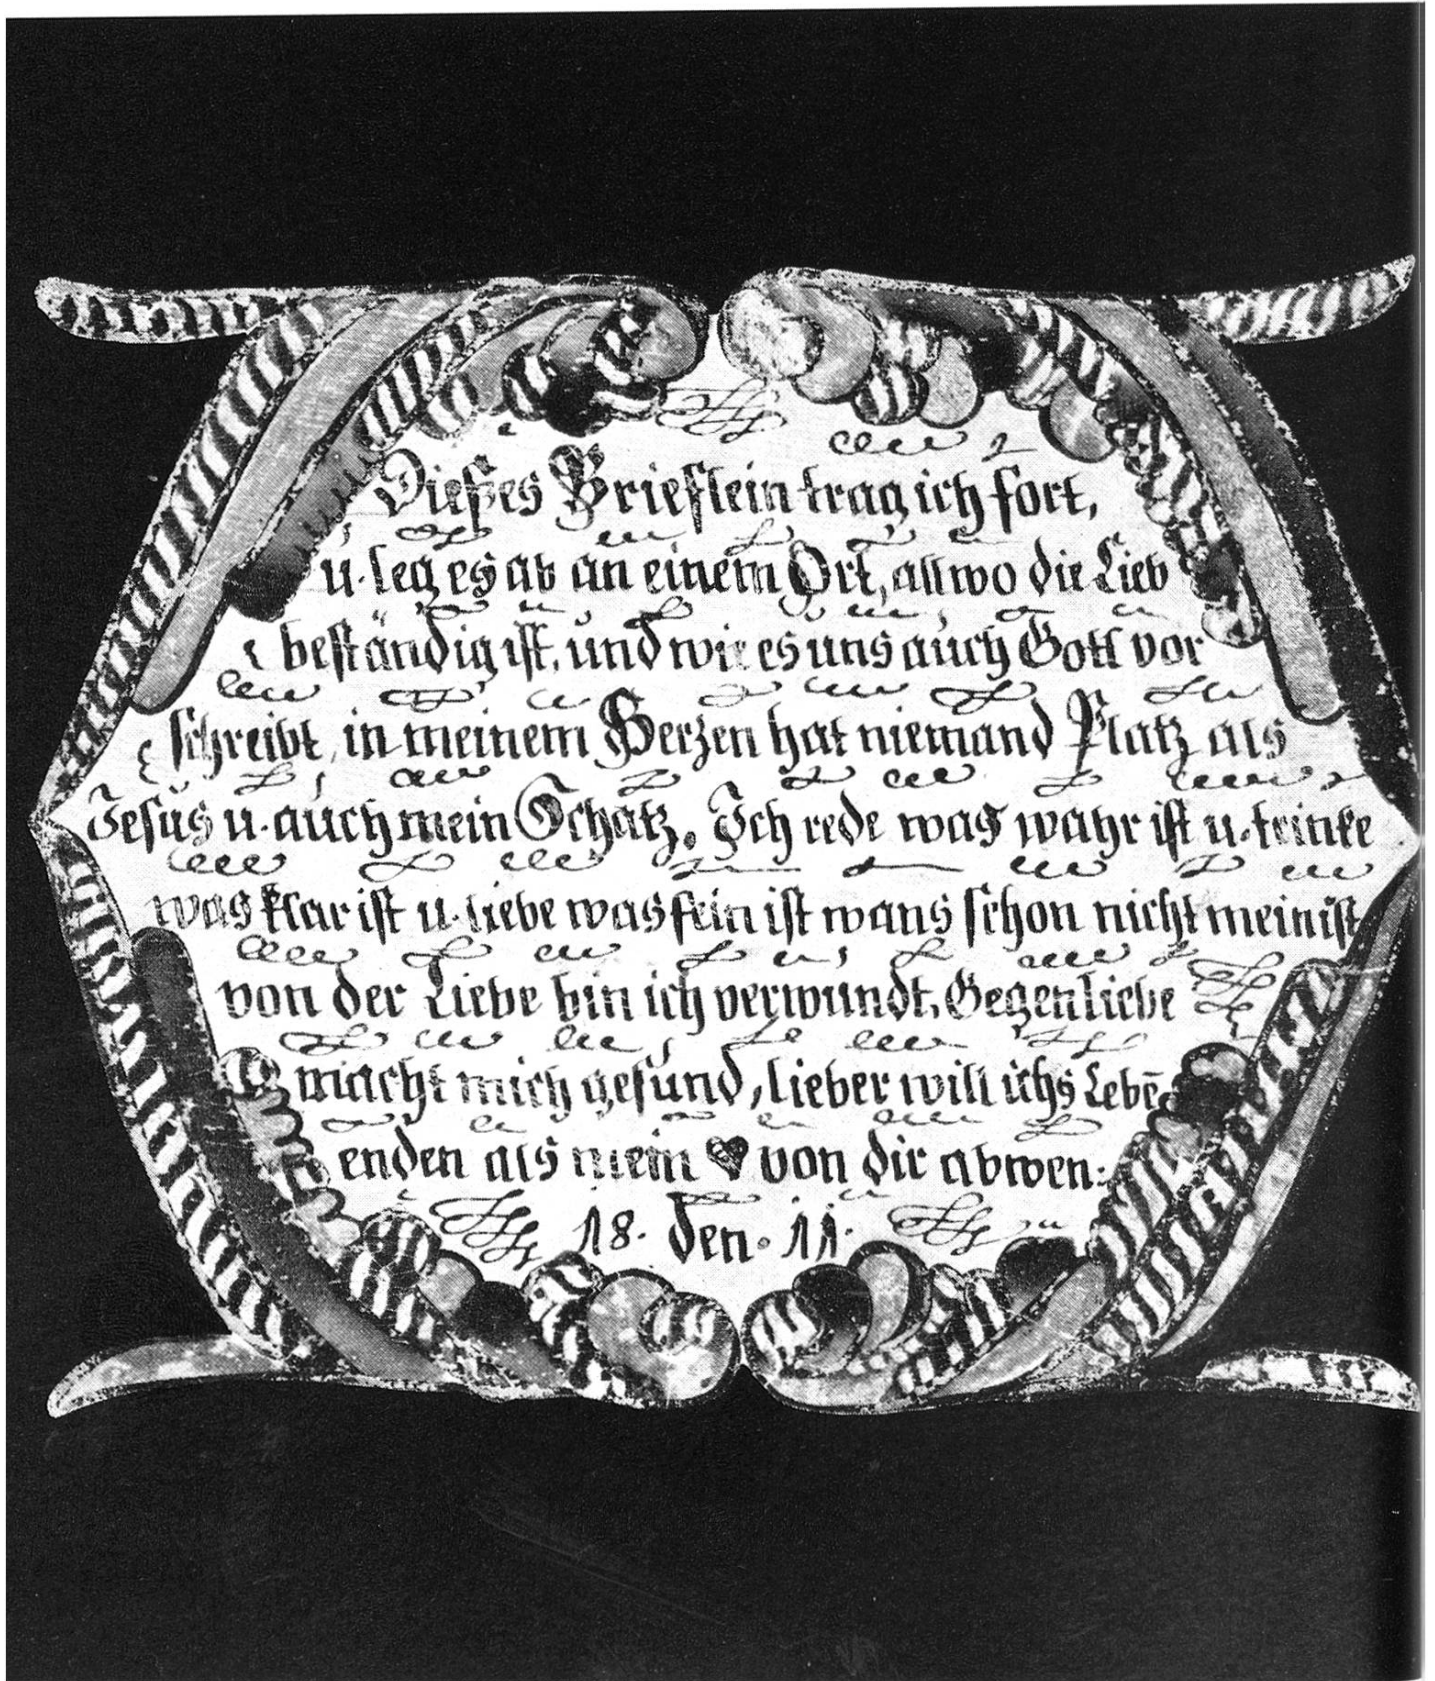 Dießes Brieflein trag ich fort,
u. leg es ab an einem Ort, allwo die Lieb
beständig ist, und wie es uns auch Gott vor
schreibt, in meinem Herzen hat niemand Platz als
Jesus u. auch mein Schatz. Ich rede was wahr ist u. trinke
was klar ist u. liebe was fein ist wans schon nicht mein ist
von der Liebe bin ich verwundt, Gegenliebe
macht mich gesund, lieber will ichs Lebē
enden als mein ♥ von dir abwen:
18. den. 11.